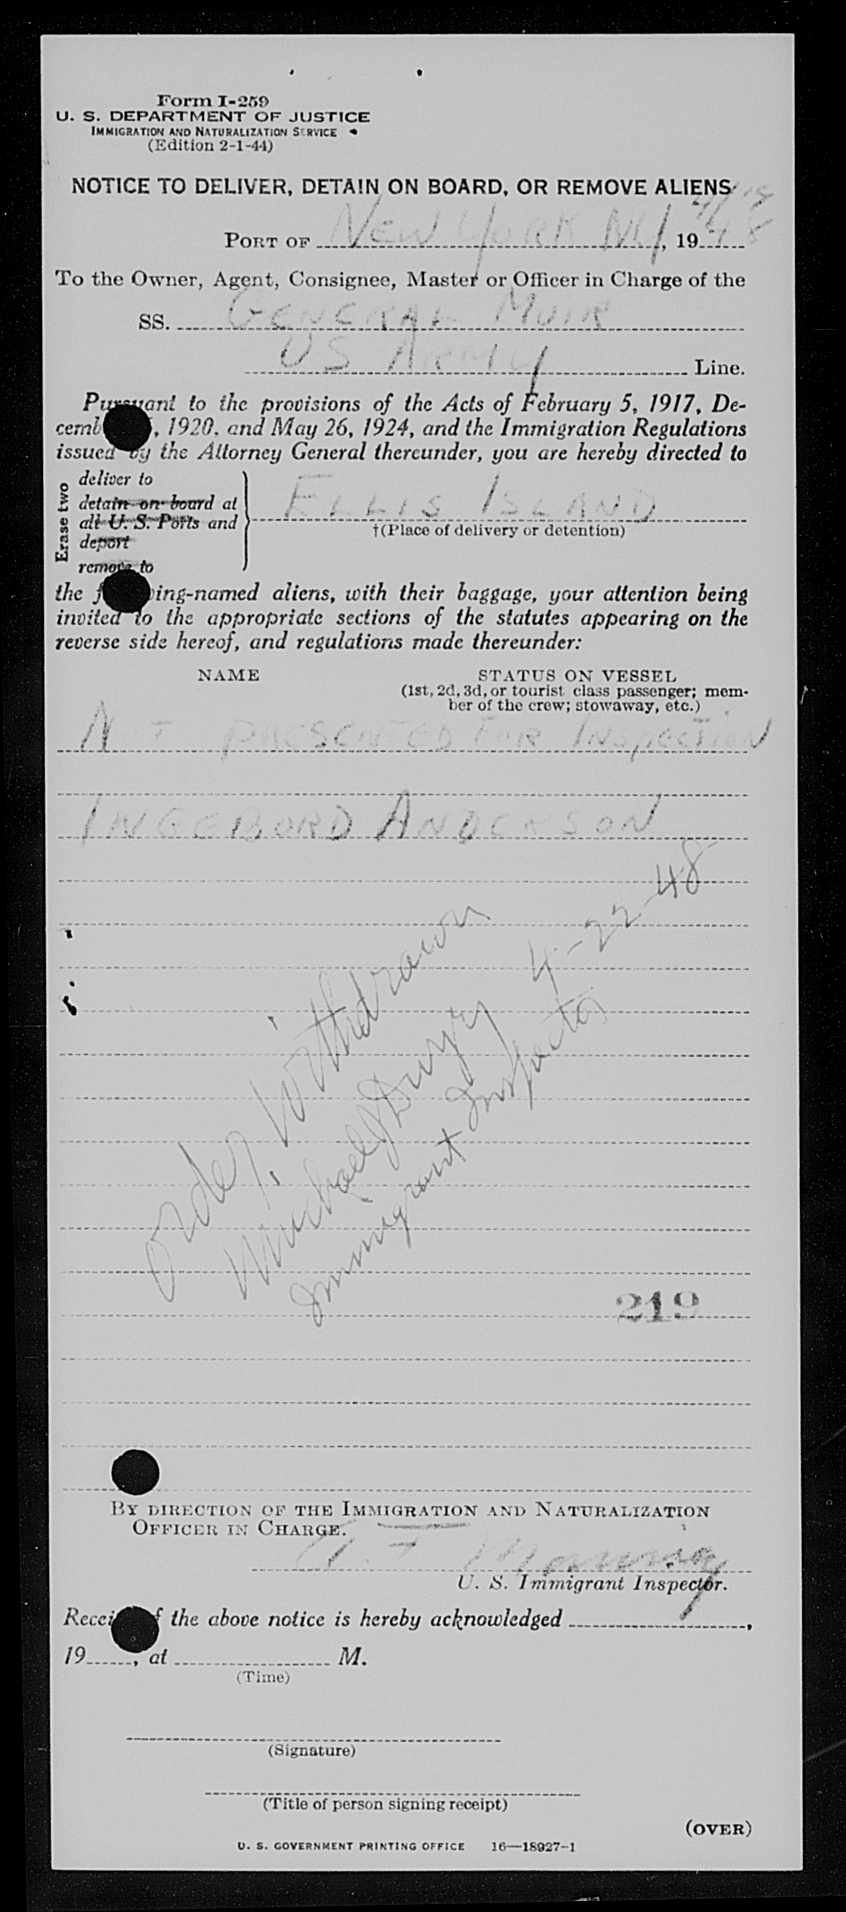 Form I-259
U. S. DEPARTMENT OF JUSTICE
IMMIGRATION AND NATURALIZATION SERVICE
(Edition 2-1-44)
NOTICE TO DELIVER, DETAIN ON BOARD, OR REMOVE ALIENS
PORT OF NEW YORK NY, 1948
To the Owner, Agent, Consignee, Master or Officer in Charge of the
SS. GENERAL MUIR
US ARMY Line.
Pursuant to the provisions of the Acts of February 5, 1917, De-
cemb , 1920, and May 26, 1924, and the Immigration Regulations
issued by the Attorney General thereunder, you are hereby directed to
Erase two
deliver to
detain on board at
all U. S. Ports and
deport
remove to
ELLIS ISLAND
†(Place of delivery or detention)
the f ing-named aliens, with their baggage, your attention being
invited to the appropriate sections of the statutes appearing on the
reverse side hereof, and regulations made thereunder:
NAME STATUS ON VESSEL
(1st, 2d, 3d, or tourist class passenger; mem-
ber of the crew; stowaway, etc.)
NOT PRESENTED FOR INSPECTION
INGEBORD ANDERSON
Order Withdrawn
Michael J Dwyer 4-22-48
Immigrant Inspector
219
BY DIRECTION OF THE IMMIGRATION AND NATURALIZATION
OFFICER IN CHARGE.
U. S. Immigrant Inspector.
Recei f the above notice is hereby acknowledged ,
19 , at M.
(Time)
(Signature)
(Title of person signing receipt)
(OVER)
U. S. GOVERNMENT PRINTING OFFICE 16—18927-1